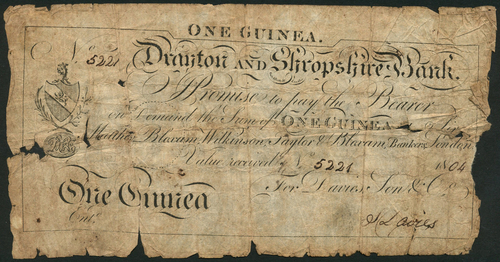 ONE GUINEA.
No. 5221 Drayton AND Shropshire Bank.
I Promise to pay the Bearer
on Demand the Sum of ONE GUINEA
Bloxam, Wilkinson, Taylor & Bloxam, Bankers, London
Value received No. 5221 1804
One Guinea For Davies, Son & Co.
Entd. S Davies